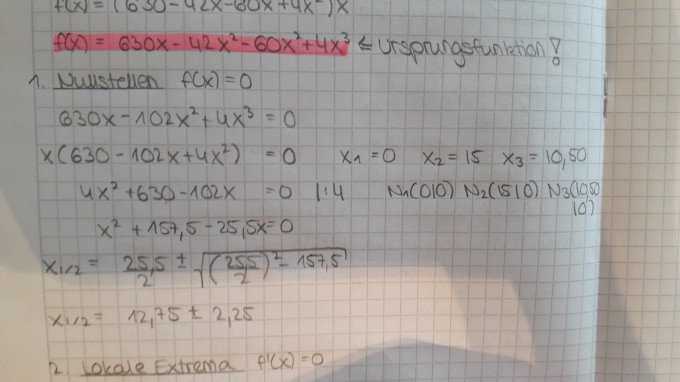 f(x) = (630-42x-60x+4x²)x
f(x) = 630x-42x²-60x²+4x³ ← Ursprungsfunktion!
1. Nullstellen f(x)=0
630x-102x²+4x³ = 0
x(630-102x+4x²) = 0 x₁=0 x₂=15 x₃=10,50
4x²+630-102x = 0 |:4 N₁(0|0) N₂(15|0) N₃(10,50
x²+157,5-25,5x=0 |0)
x₁/₂ = 25,5/2 ± √((25,5/2)²-157,5)
x₁/₂ = 12,75 ± 2,25
2. Lokale Extrema f'(x)=0